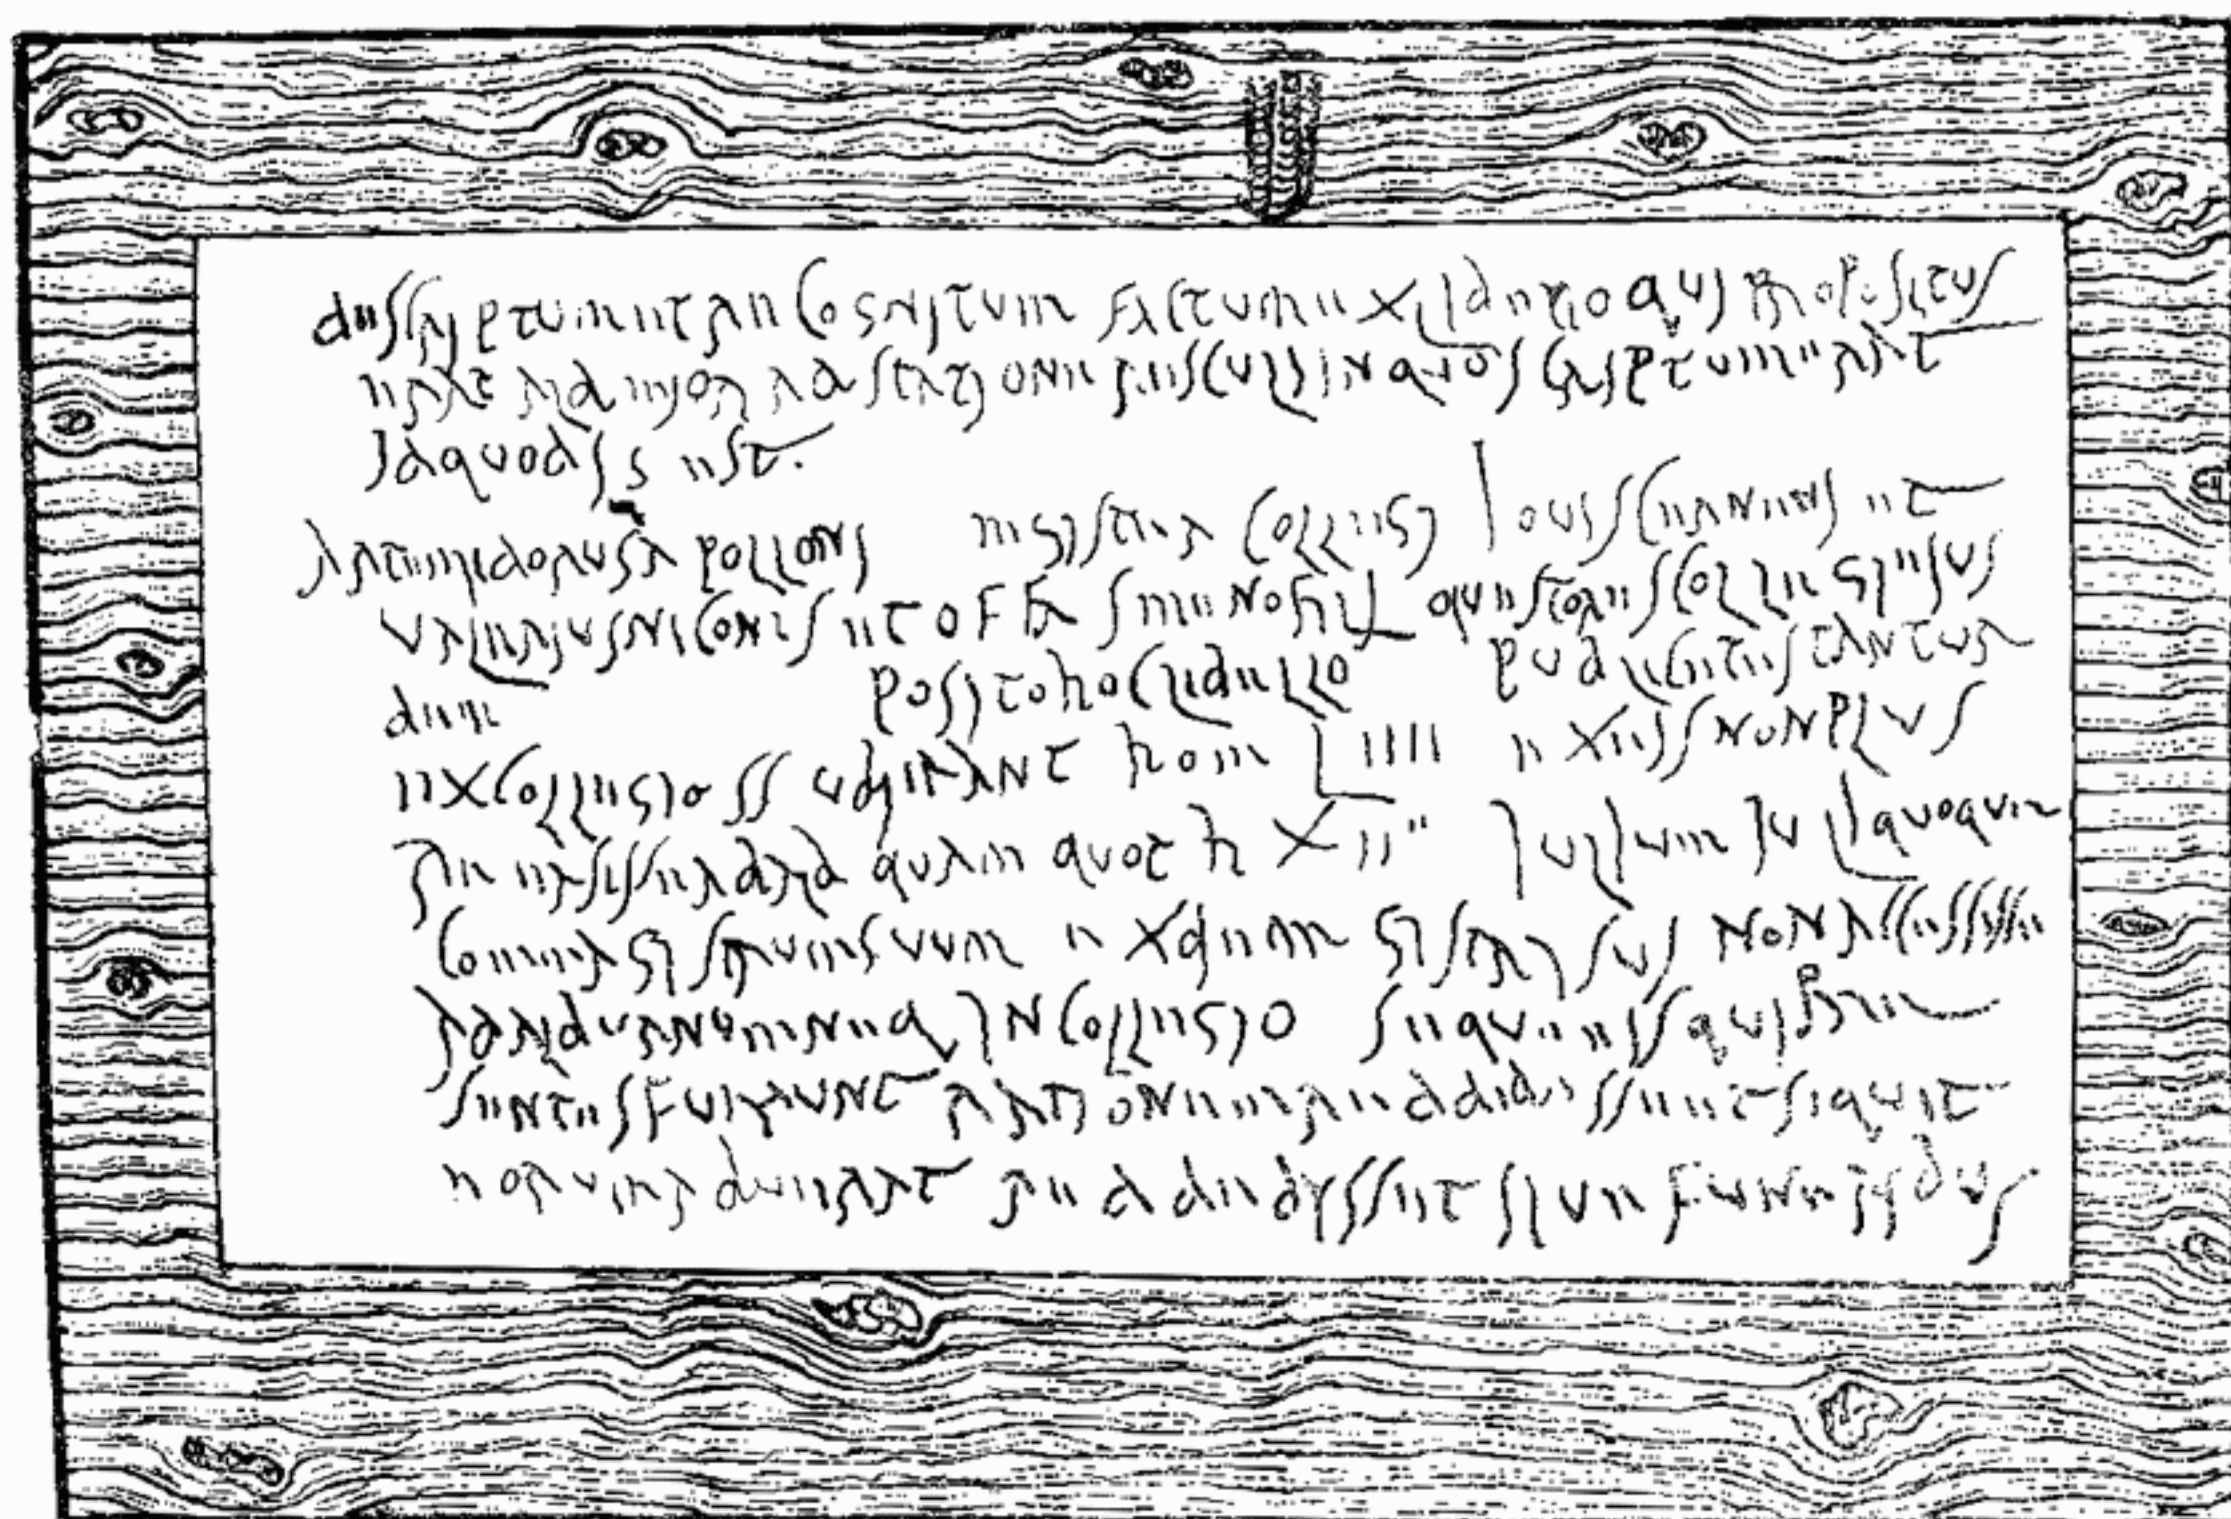 descriptum et recognitum factum ex libello qui propositus
erat Alb maiori ad statione Resculi in quo scriptum erat
id quod i s est.
Artemidorus Apolloni magister collegi Iovis Cerneni et
Valerius Niconis et Offas Menofili questores collegi eius
dem posito hoc libello publice testantur
ex collegio s s ubi erant hom LIIII ex eis non plus
quam quot h Iulium Iuli quoque
commagistrum suum ex die magistri sui non accessisse
ad Alburnum neq in collegio seque eis qui pre
sentes fuerunt rationem reddidisse et si quit
eorum habuerat reddidisset sive funeribus